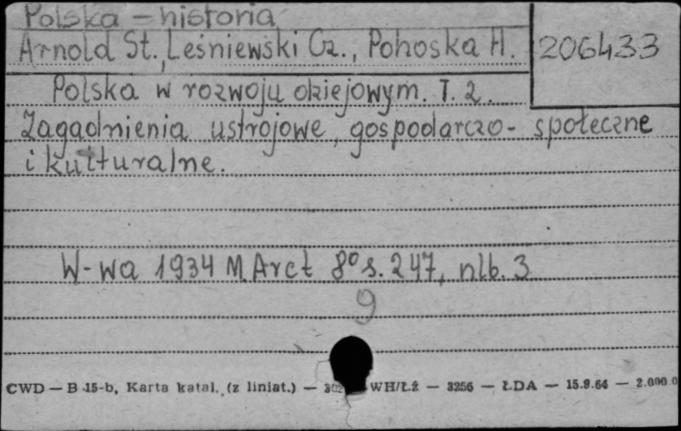 Polska – historia
Arnold St., Leśniewski Cz., Pohoska H. 206433
Polska w rozwoju dziejowym. T. 2.
Zagadnienia ustrojowe, gospodarczo-społeczne
i kulturalne.
W-wa 1934 M. Arct 8° s. 247, nlb. 3
9
CWD — B 15-b, Karta katal. (z liniat.) — WH/Łź — 3256 — ŁDA — 15.9.64 — 2.000.0